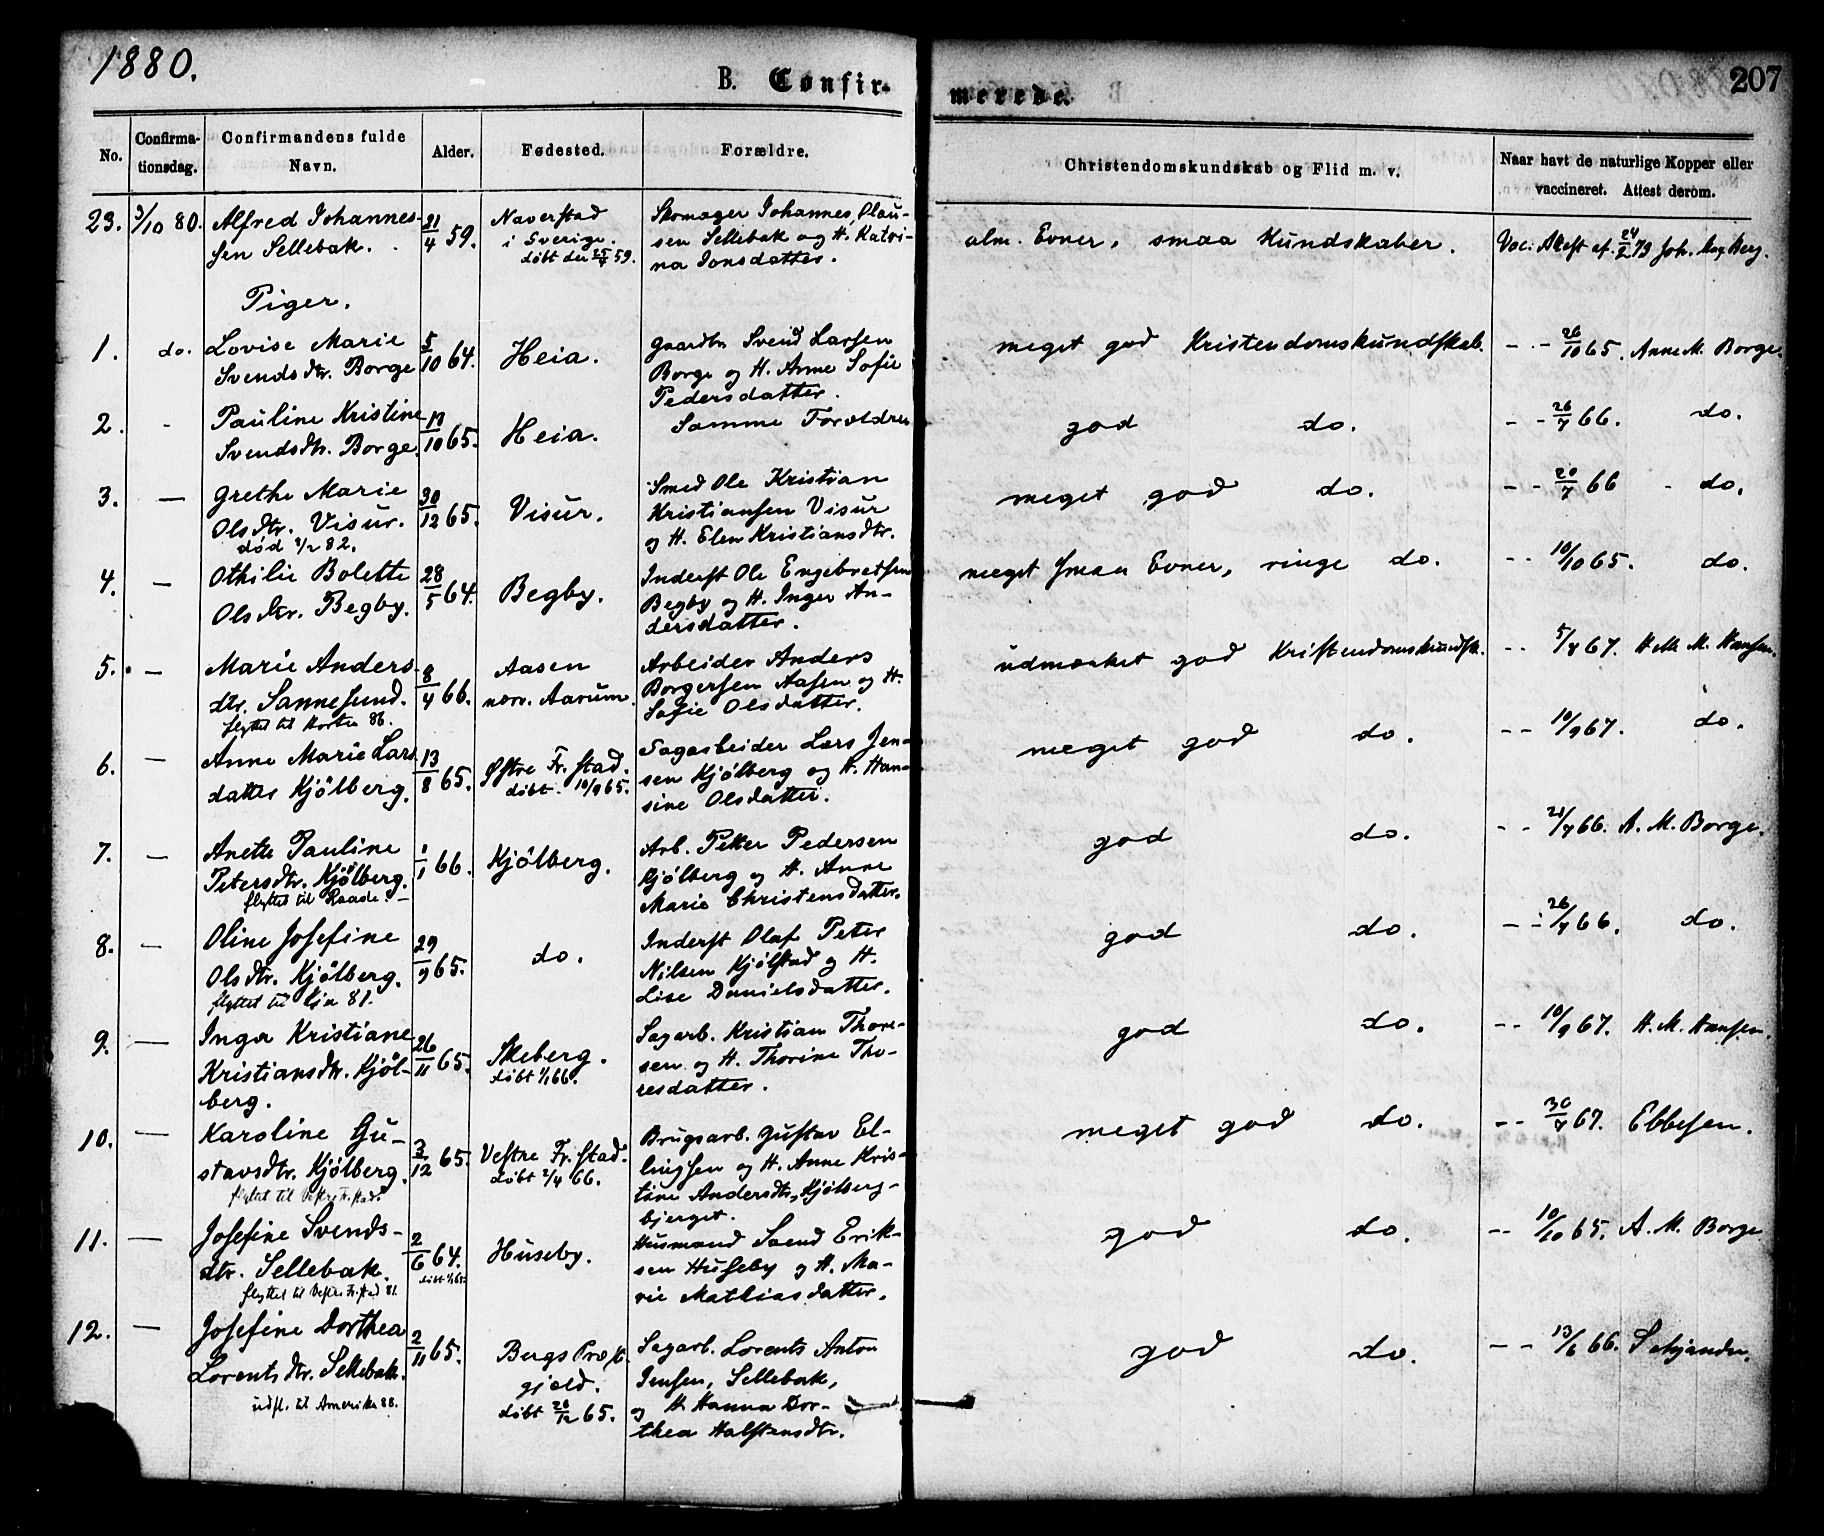 1880.
B. Confir-
merede.
207
No.
Confirma-
tionsdag.
Confirmandens fulde
Navn.
Alder.
Fødested.
Forældre.
Christendomskundskab og Flid m. v.
Naar havt de naturlige Kopper eller
vaccineret. Attest derom.
23. 3/10 80. Alfred Johannes- 21/4 59. Naverstad Skomager Johannes Olau- alm. Evner, smaa Kundskaber. Vac. Atest af 24/2 79 Joh. Berg.
sen Sellebak. i Sverige. sen Sellebak og H. Katri-
døbt den 25/4 59. na Jonsdatter.
Piger.
1. do. Lovise Marie 5/10 64. Heia. Gaardbr. Svend Larsen meget god Kristendomskundskab. - - 26/10 65. Anne M. Borge.
Svendsdtr. Borge Borge og H. Anne Sofie
Pedersdatter.
2. - Pauline Kristine 17/10 65. Heia. Samme Forældre god do. - - 26/7 66. do.
Svendsdtr. Borge.
3. — Grethe Marie 30/12 65. Visur. Smed Ole Kristian meget god do. - - 20/7 66 - do.
Olsdtr. Visur. Kristiansen Visur
død 2/2 82. og H. Elen Kristiansdtr.
4. — Othilie Bolette 28/5 64. Begby. Inderst Ole Engebretsen meget smaa Evner, ringe do. - - 10/10 65. do.
Olsdtr. Begby. Begby og H. Inger An-
dersdatter.
5. — Marie Anders 8/4 66. Aasen Arbeider Anders udmærket god Kristendomskundsk. - - 5/8 67. H. M. Hansen.
dtr. Sannesund. nær. Aarum. Borgersen Aasen og H.
flyttet til Horten 86. Sofie Olsdatter.
6. — Anne Marie Lars 13/8 65. Østre Fr.stad. Sagarbeider Lars Jen- meget god do. - - 10/9 67. do.
datter Kjölberg. døbt 10/9 65. sen Kjölberg og H. Han-
sine Olsdatter.
7. — Anette Pauline 1/1 66. Kjölberg. Arb. Peter Pedersen god do. - - 21/7 66. A. M. Borge.
Petersdtr. Kjölberg. Kjölberg og H. Anne
flyttet til Raade. Marie Christensdatter.
8. — Oline Josefine 29/9 65. do. Inderst Olaf Peter god do. - - 26/7 66. do.
Olsdtr. Kjölberg. Nilsen Kjölstad og H.
flyttet til 81. Lise Danielsdatter.
9. — Inga Kristiane 26/11 65. Skeberg. Sagarb. Kristian Thore- god do. - - 10/9 67. H. M. Hansen.
Kristiansdtr. Kjöl- døbt 1/1 66. sen og H. Thorine Tho-
berg. resdatter.
10. — Karoline Gu- 3/12 65. Vestre Fr.stad. Brugsarb. Gustav El- meget god do. - - 30/7 67. Ebbesen.
stavsdtr. Kjölberg. døbt 2/4 66. lingsen og H. Anne Kris-
flyttet til Vestre Fr.stad. tine Andersdtr., Kjölberg-
bjerget.
11. — Josefine Svends- 2/6 64. Huseby. Husmand Svend Erik- god do. - - 10/10 65. A. M. Borge
dtr. Sellebak. sen Huseby og H. Ma-
flyttet til Vestre Fr.stad 81. rie Mathiasdatter.
12. — Josefine Dorthea 2/11 65. Bergs Præst- Sagarb. Lorents Anton god do. - - 13/6 66.
Lorentsdtr. Sellebak. gjeld. Jensen, Sellebak,
udfl. til Amerika 88. døbt 26/12 65. og H. Hanna Dor-
thea Halstensdtr.